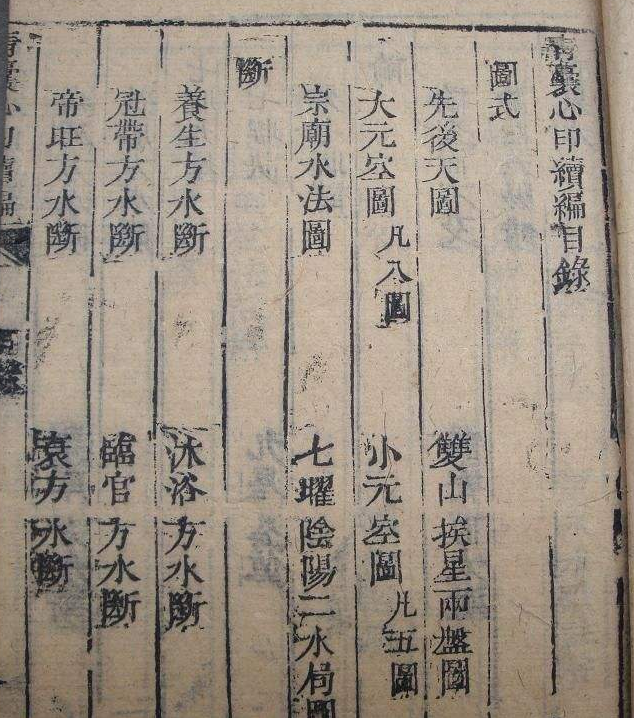 青囊心印續編目錄
圖式
先後天圖 雙山挨星兩盤圖
大元空圖 凡八圖 小元空圖 凡五圖
宗廟水法圖 七曜陰陽二水局圖
斷
養生方水斷 沐浴方水斷
冠帶方水斷 臨官方水斷
帝旺方水斷 衰方水斷
青囊心印續編